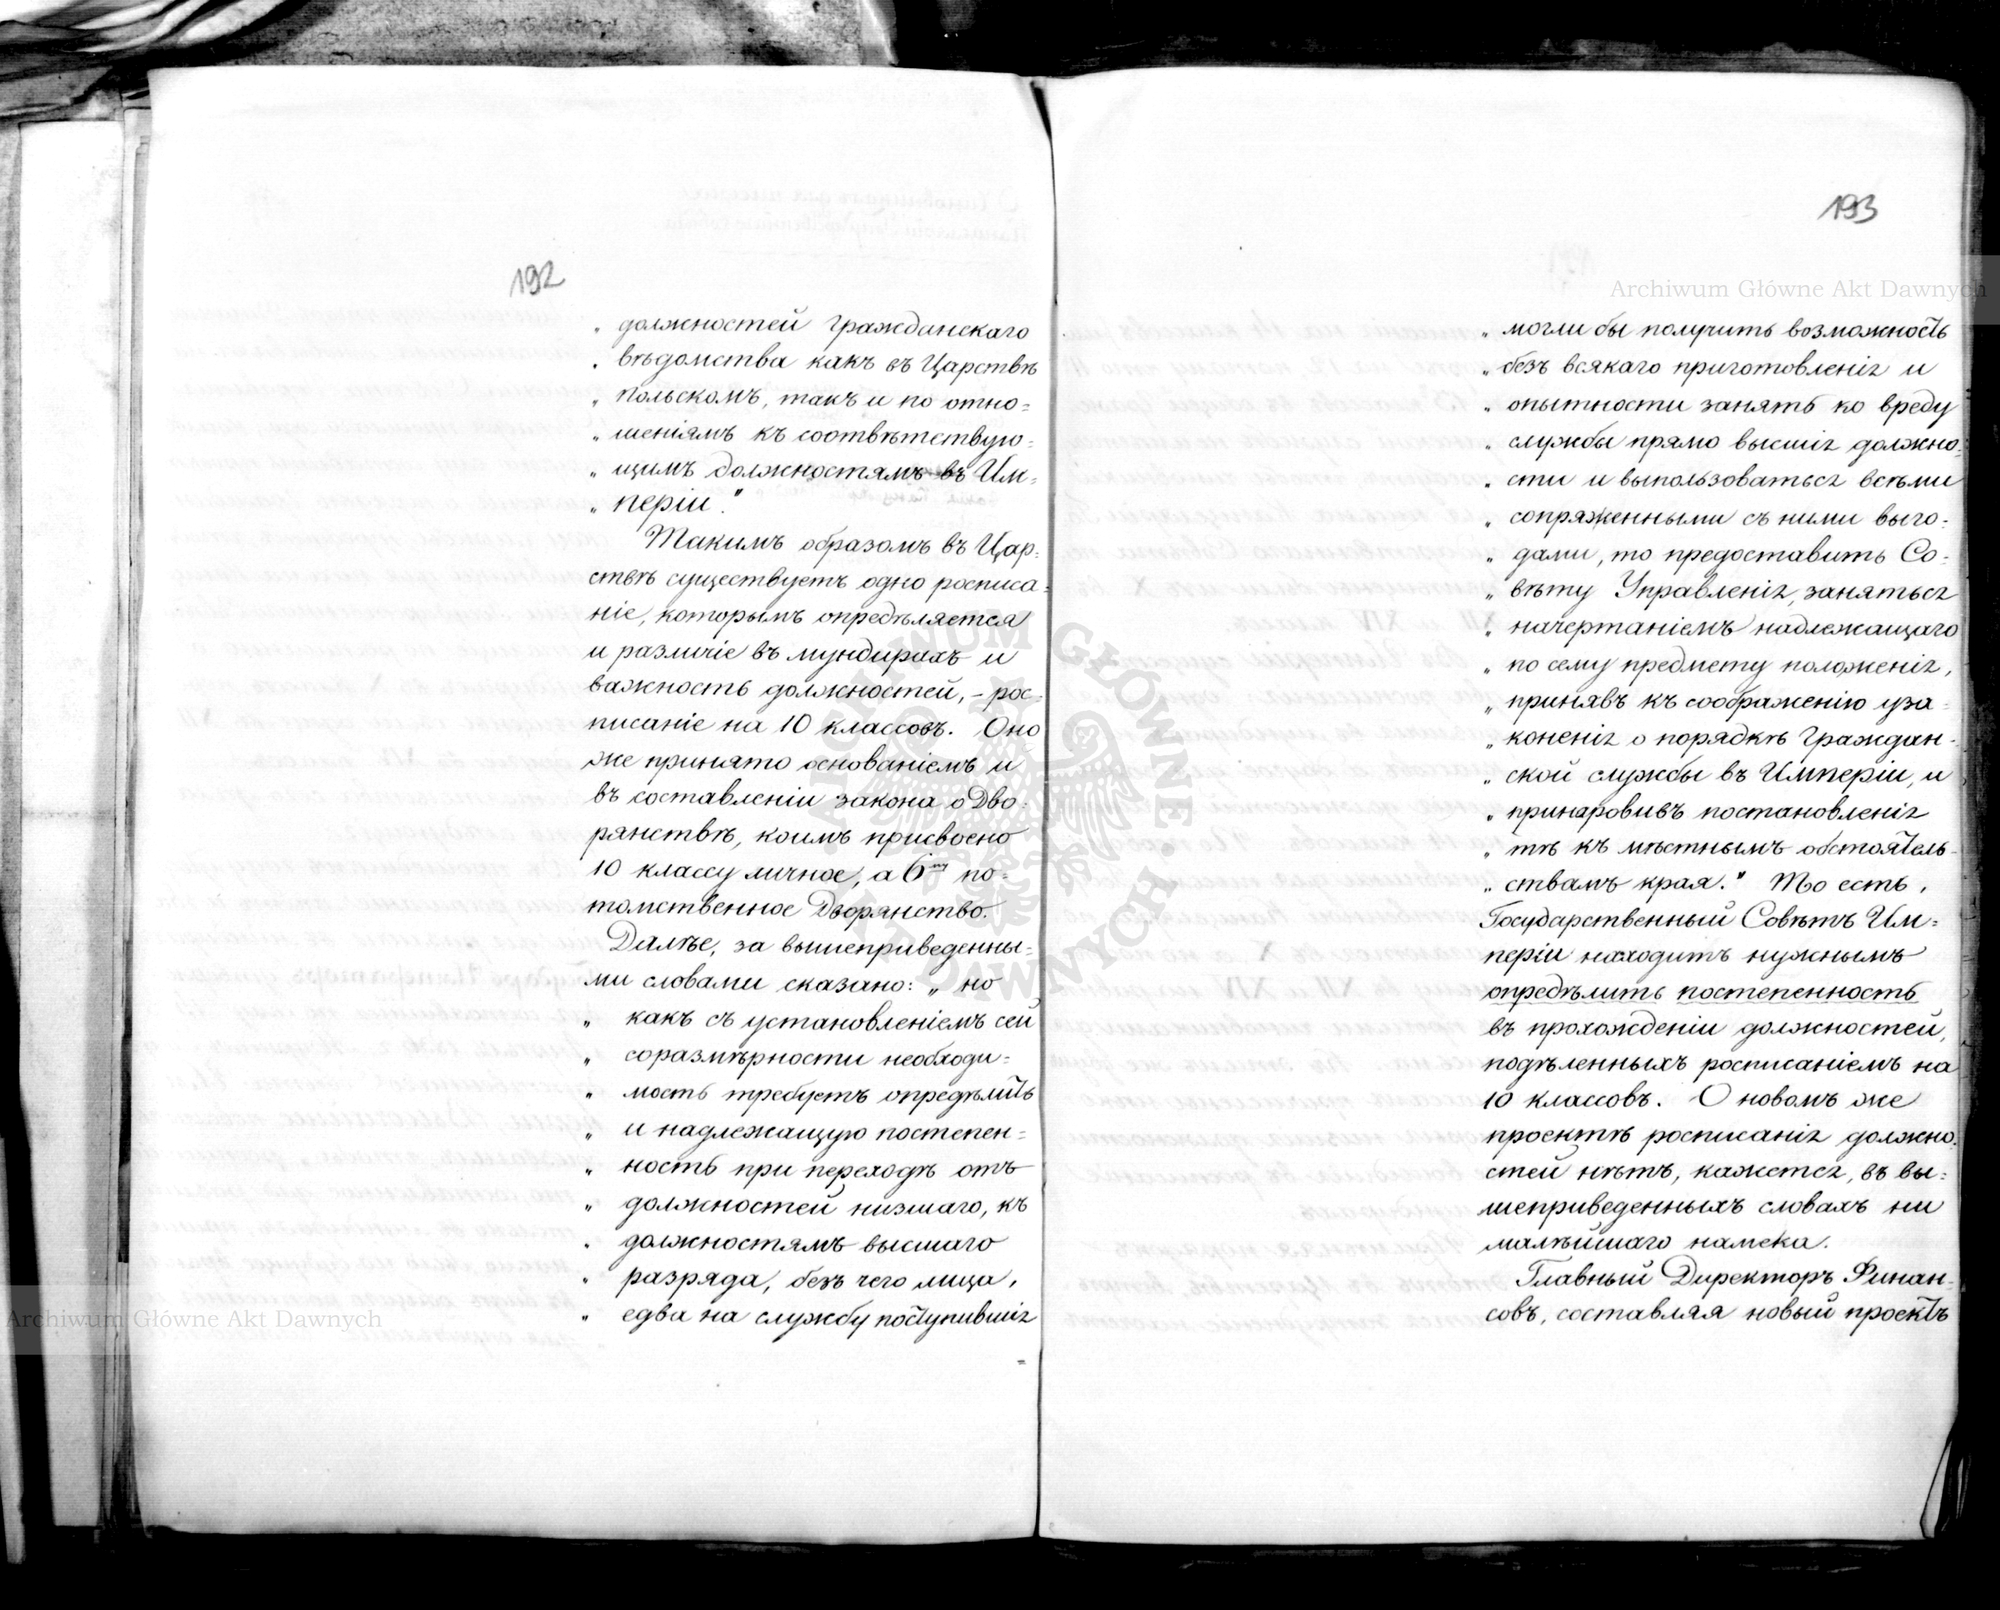 192
„ должностей гражданскаго
„ вѣдомства какъ въ Царствѣ
„ Польскомъ, такъ и по отно=
„ шеніямъ къ соотвѣтствую=
„ щимъ должностямъ въ Им=
„ періи."
Такимъ образомъ въ Цар=
ствѣ существуетъ одно росписа=
ніе, которымъ опредѣляется
и различіе въ мундирахъ и
важность должностей, – рос=
писаніе на 10 классовъ. Оно
же принято основаніемъ и
въ составленіи закона о Дво=
рянствѣ, коимъ присвоено
10 классу личное, а 6му по=
томственное Дворянство.
Далѣе, за вышеприведенны=
ми словами сказано: „ но
„ какъ съ установленіемъ сей
„ соразмѣрности необходи=
„ мость требуетъ опредѣлить
„ и надлежащую постепен=
„ ность при переходѣ отъ
„ должностей низшаго, къ
„ должностямъ высшаго
„ разряда, безъ чего лица,
„ едва на службу поступившія
193
„ могли бы получить возможность
„ безъ всякаго приготовленія и
„ опытности занять ко вреду
„ службы прямо высшія должно=
„ сти и выпользоваться всѣми
„ сопряженными съ ними выго=
„ дами, то предоставить Со=
„ вѣту Управленія, заняться
„ начертаніемъ надлежащаго
„ по сему предмету положенія,
„ принявъ къ соображенію уза=
„ коненія о порядкѣ Граждан=
„ ской службы въ Имперіи, и
„ принаровивъ постановленія
„ тѣ къ мѣстнымъ обстоятель=
„ ствамъ края." То есть,
Государственный Совѣтъ Им=
періи находитъ нужнымъ
опредѣлить постепенность
въ прохожденіи должностей,
подѣленныхъ росписаніемъ на
10 классовъ. О новомъ же
проектѣ росписанія должно=
стей нѣтъ, кажется, въ вы=
шеприведенныхъ словахъ ни
малѣйшаго намека.
Главный Директоръ Финан=
совъ, составляя новый проектъ
Archiwum Główne Akt Dawnych
Archiwum Główne Akt Dawnych
ARCHIWUM GŁÓWNE AKT DAWNYCH